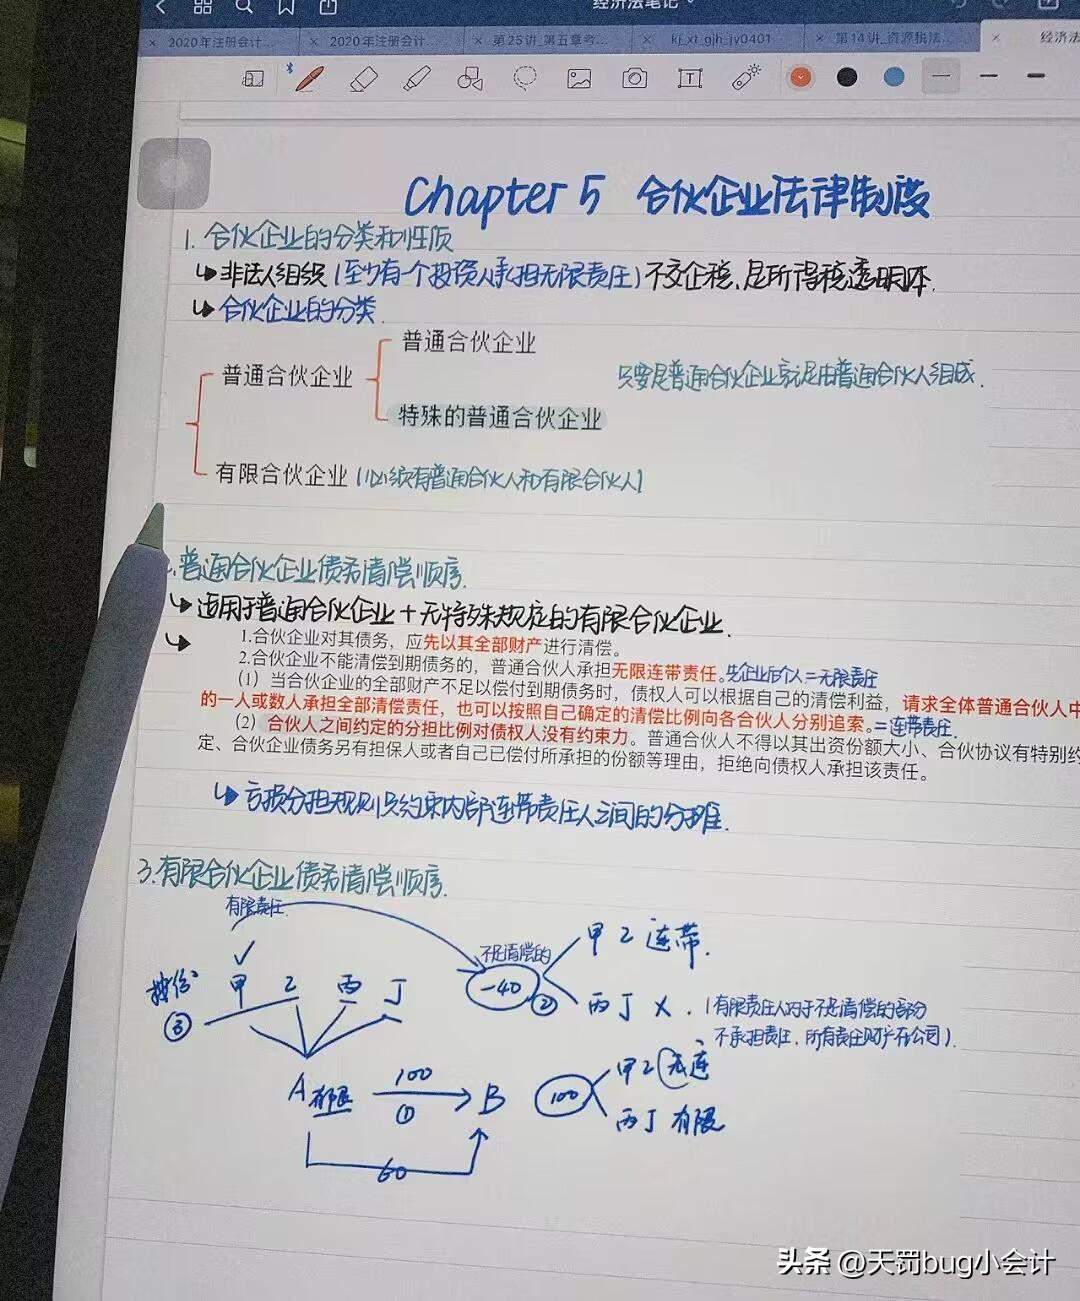 经济法笔记
× 2020年注册会计...
× 2020年注册会计...
× 第25讲_第五章考...
× kj_xt_gjh_jy0401
× 第14讲_资源税法...
× 经济法
Chapter 5 合伙企业法律制度
1. 合伙企业的分类和性质
↳ 非法人组织（至少有一个投资人承担无限责任）不交企税，是所得税透明体.
↳ 合伙企业的分类.
普通合伙企业
普通合伙企业
只要是普通合伙企业就是由普通合伙人组成.
特殊的普通合伙企业
有限合伙企业（必须有普通合伙人和有限合伙人）
2.普通合伙企业债务清偿顺序.
↳ 适用于普通合伙企业+无特殊规定的有限合伙企业.
1.合伙企业对其债务，应先以其全部财产进行清偿。
2.合伙企业不能清偿到期债务的，普通合伙人承担无限连带责任。先企业后个人=无限责任
(1) 当合伙企业的全部财产不足以偿付到期债务时，债权人可以根据自己的清偿利益，请求全体普通合伙人中
的一人或数人承担全部清偿责任，也可以按照自己确定的清偿比例向各合伙人分别追索。=连带责任.
(2) 合伙人之间约定的分担比例对债权人没有约束力。普通合伙人不得以其出资份额大小、合伙协议有特别约
定、合伙企业债务另有担保人或者自己已偿付所承担的份额等理由，拒绝向债权人承担该责任。
↳ 亏损分担规则只约束内部连带责任人之间的分摊.
3.有限合伙企业债务清偿顺序.
有限责任
不足清偿的
甲乙 连带.
甲 乙 丙 丁
③
-40
②
丙丁 ×.（有限责任人对于不足清偿的部分
不承担责任，所有责任财产在公司）.
A有限
100
①
B
100
甲乙 无连
丙丁 有限
60
头条 @天罚bug小会计